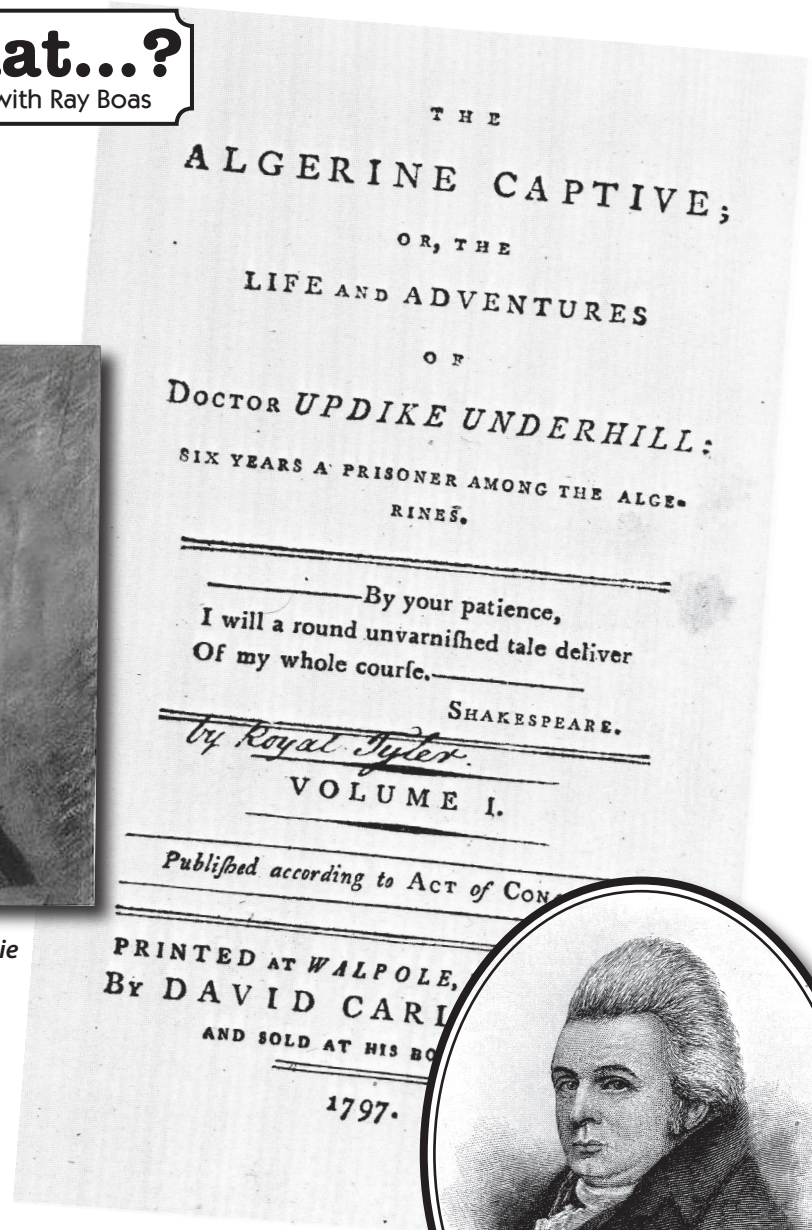 at...?
with Ray Boas
THE
ALGERINE CAPTIVE;
OR, THE
LIFE AND ADVENTURES
OF
DOCTOR UPDIKE UNDERHILL:
SIX YEARS A PRISONER AMONG THE ALGE-
RINES.
By your patience,
I will a round unvarniſhed tale deliver
Of my whole courſe.
SHAKESPEARE.
by Royal Tyler.
VOLUME I.
Publiſhed according to ACT of CON
PRINTED AT WALPOLE,
BY DAVID CARL
AND SOLD AT HIS BO
1797.
ie